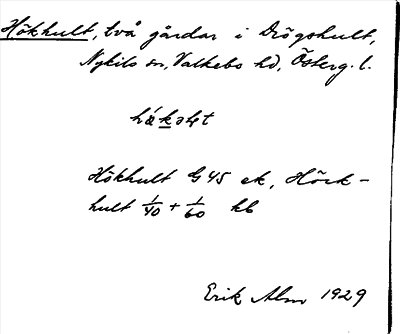 Hökhult, två gårdar i Drögshult,
Nykils sn, Valkebo hd, Österg. l.
Hökhult G 45 ek, Hörk-
hult 1/40 + 1/60 kb
Erik Alm 1929